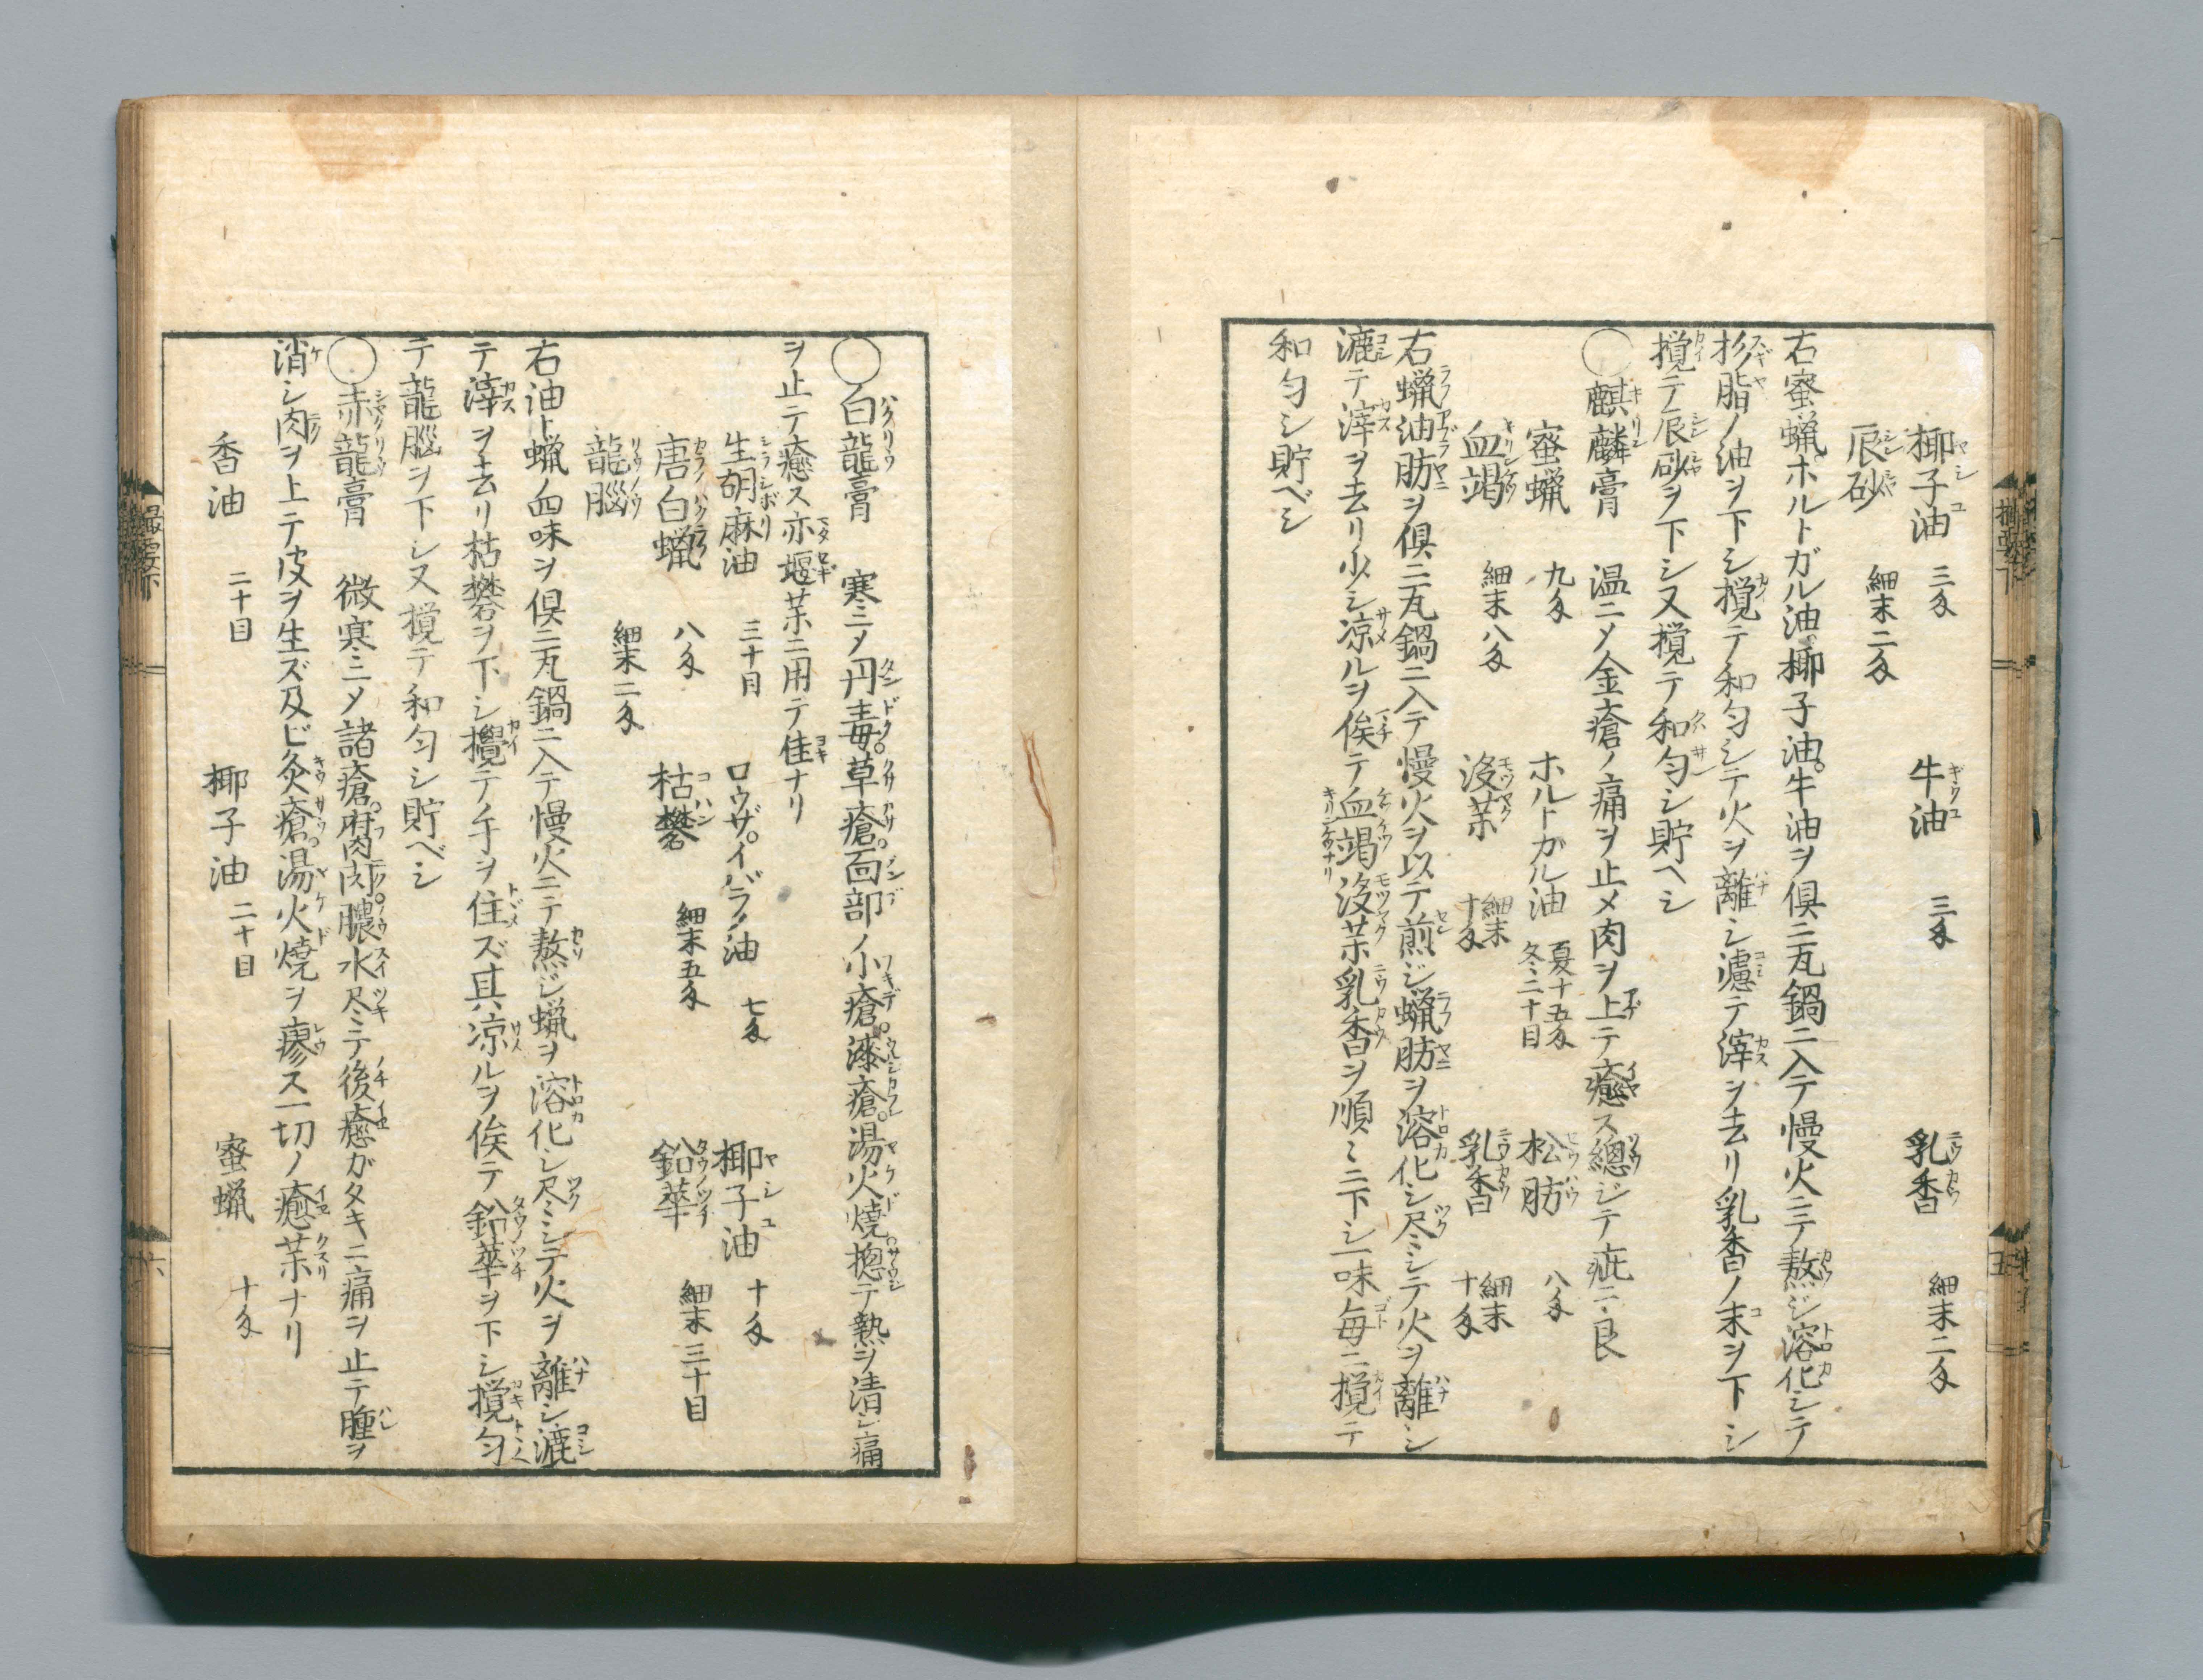 椰子油 三匁 牛油 三匁 乳香 細末二匁
辰砂 細末二匁
右蜜蝋ホルトガル油椰子油牛油ヲ俱ニ瓦鍋ニ入テ慢火ニテ熬ジ溶化シテ
杉脂ノ油ヲ下シ攪テ和匀シテ火ヲ離シ濾テ滓ヲ去リ乳香ノ末ヲ下シ
攪テ辰砂ヲ下シ又攪テ和匀シ貯ヘシ
○麒麟膏 温ニメ金瘡ノ痛ヲ止メ肉ヲ上テ癒ス總ジテ疵ニ良
蜜蝋 九匁 ホルトガル油 夏十五匁 冬二十目 松肪 八匁
血竭 細末八匁 没薬 細末十匁 乳香 細末十匁
右蝋油肪ヲ俱ニ瓦鍋ニ入テ慢火ヲ以テ煎ジ蝋肪ヲ溶化シ尽ミシテ火ヲ離シ
漉テ滓ヲ去リ少シ凉ルヲ俟テ血竭没薬乳香ヲ順ミニ下シ一味每ニ攪テ
和匀シ貯ベシ
○白龍膏 寒ニメ丹毒草瘡面部ノ小瘡漆瘡湯火燒揔テ熱ヲ清シ痛
ヲ止テ癒ス亦堰薬ニ用テ佳ナリ
生胡麻油 三十目 ロウザイバラノ油 七匁 椰子油 十匁
唐白蝋 八匁 枯礬 細末五匁 鉛華 細末三十目
龍腦 細末二匁
右油ト蝋ノ四味ヲ俱ニ瓦鍋ニ入テ慢火ニテ熬ジ蝋ヲ溶化シ尽ミシテ火ヲ離シ漉
テ滓ヲ去リ枯礬ヲ下シ攪テ手ヲ住ズ其凉ルヲ俟テ鉛華ヲ下シ攪匀
テ龍腦ヲ下シ又攪テ和匀シ貯ベシ
○赤龍膏 微寒ニメ諸瘡腐肉膿水尽ミテ後癒ガタキニ痛ヲ止テ腫ヲ
消シ肉ヲ上テ皮ヲ生ズ及ビ灸瘡湯火燒ヲ療ス一切ノ癒薬ナリ
香油 二十目 椰子油 二十目 蜜蝋 十匁